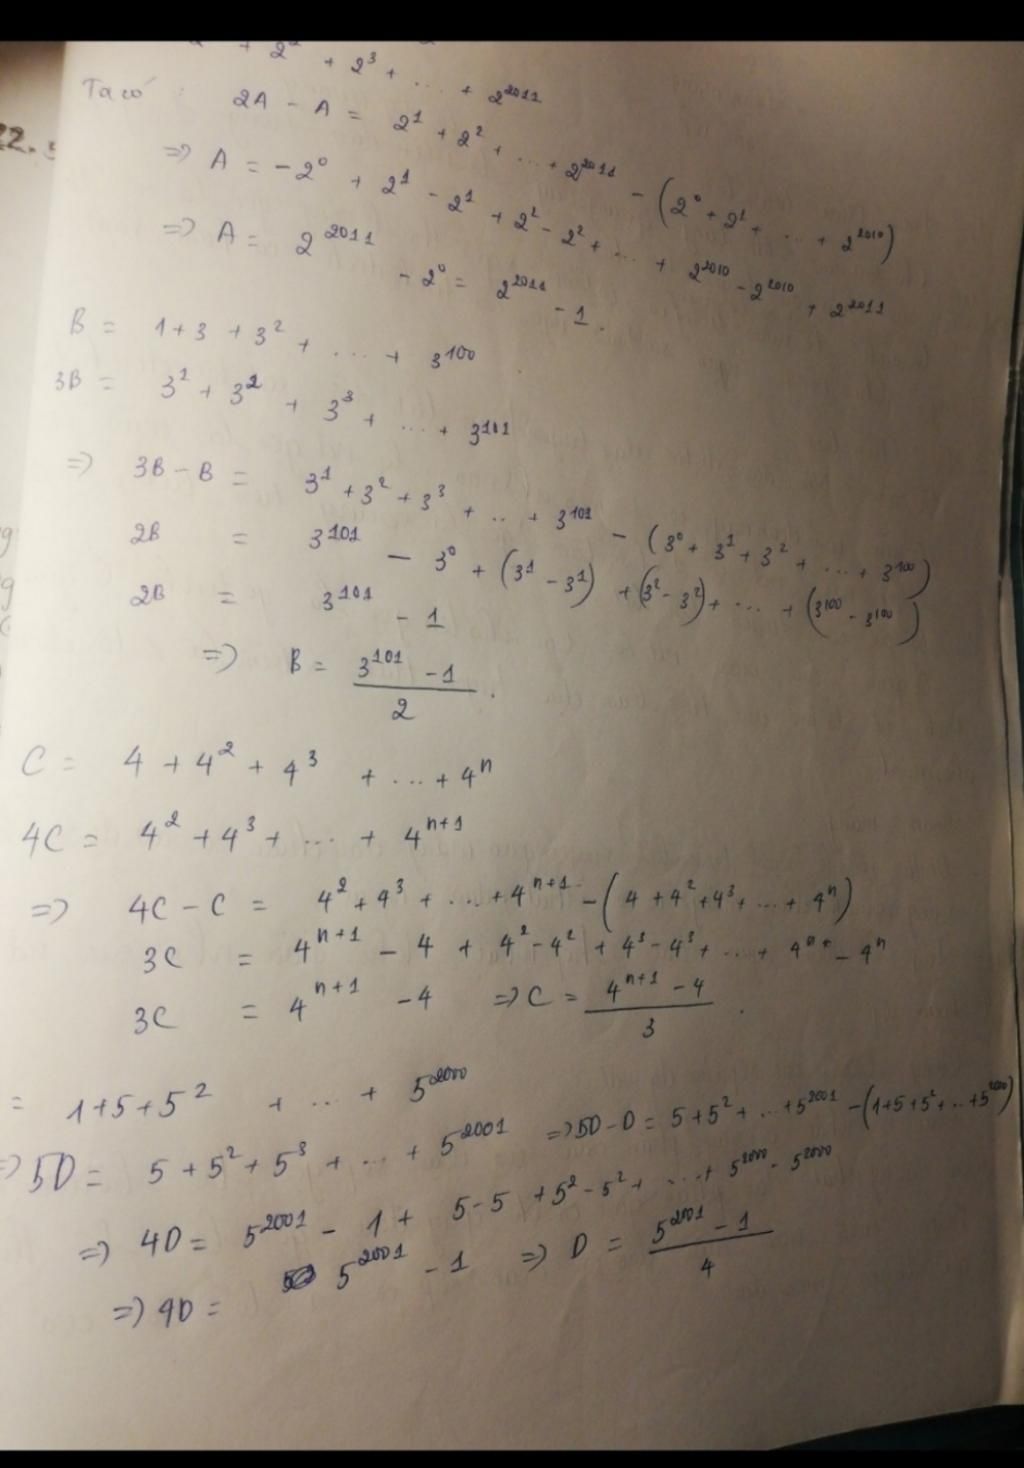 + 2² + 2³ + ... + 2²⁰¹¹
Ta có : 2A - A = 2¹ + 2² + ... + 2²⁰¹¹ - (2⁰ + 2¹ + ... + 2²⁰¹⁰)
=> A = -2⁰ + 2¹ - 2¹ + 2² - 2² + ... + 2²⁰¹⁰ - 2²⁰¹⁰ + 2²⁰¹¹
=> A = 2²⁰¹¹ - 2⁰ = 2²⁰¹¹ - 1.
B = 1 + 3 + 3² + ... + 3¹⁰⁰
3B = 3¹ + 3² + 3³ + ... + 3¹⁰¹
=> 3B - B = 3¹ + 3² + 3³ + ... + 3¹⁰¹ - (3⁰ + 3¹ + 3² + ... + 3¹⁰⁰)
2B = 3¹⁰¹ - 3⁰ + (3¹ - 3¹) + (3² - 3²) + ... + (3¹⁰⁰ - 3¹⁰⁰)
2B = 3¹⁰¹ - 1
=> B = (3¹⁰¹ - 1)/2 .
C = 4 + 4² + 4³ + ... + 4ⁿ
4C = 4² + 4³ + ... + 4ⁿ⁺¹
=> 4C - C = 4² + 4³ + ... + 4ⁿ⁺¹ - (4 + 4² + 4³ + ... + 4ⁿ)
3C = 4ⁿ⁺¹ - 4 + 4² - 4² + 4³ - 4³ + ... + 4ⁿ - 4ⁿ
3C = 4ⁿ⁺¹ - 4 => C = (4ⁿ⁺¹ - 4)/3 .
= 1 + 5 + 5² + ... + 5²⁰⁰⁰
=> 5D = 5 + 5² + 5³ + ... + 5²⁰⁰¹ => 5D - D = 5 + 5² + ... + 5²⁰⁰¹ - (1 + 5 + 5² + ... + 5²⁰⁰⁰)
=> 4D = 5²⁰⁰¹ - 1 + 5 - 5 + 5² - 5² + ... + 5²⁰⁰⁰ - 5²⁰⁰⁰
=> 4D = 5²⁰⁰¹ - 1 => D = (5²⁰⁰¹ - 1)/4